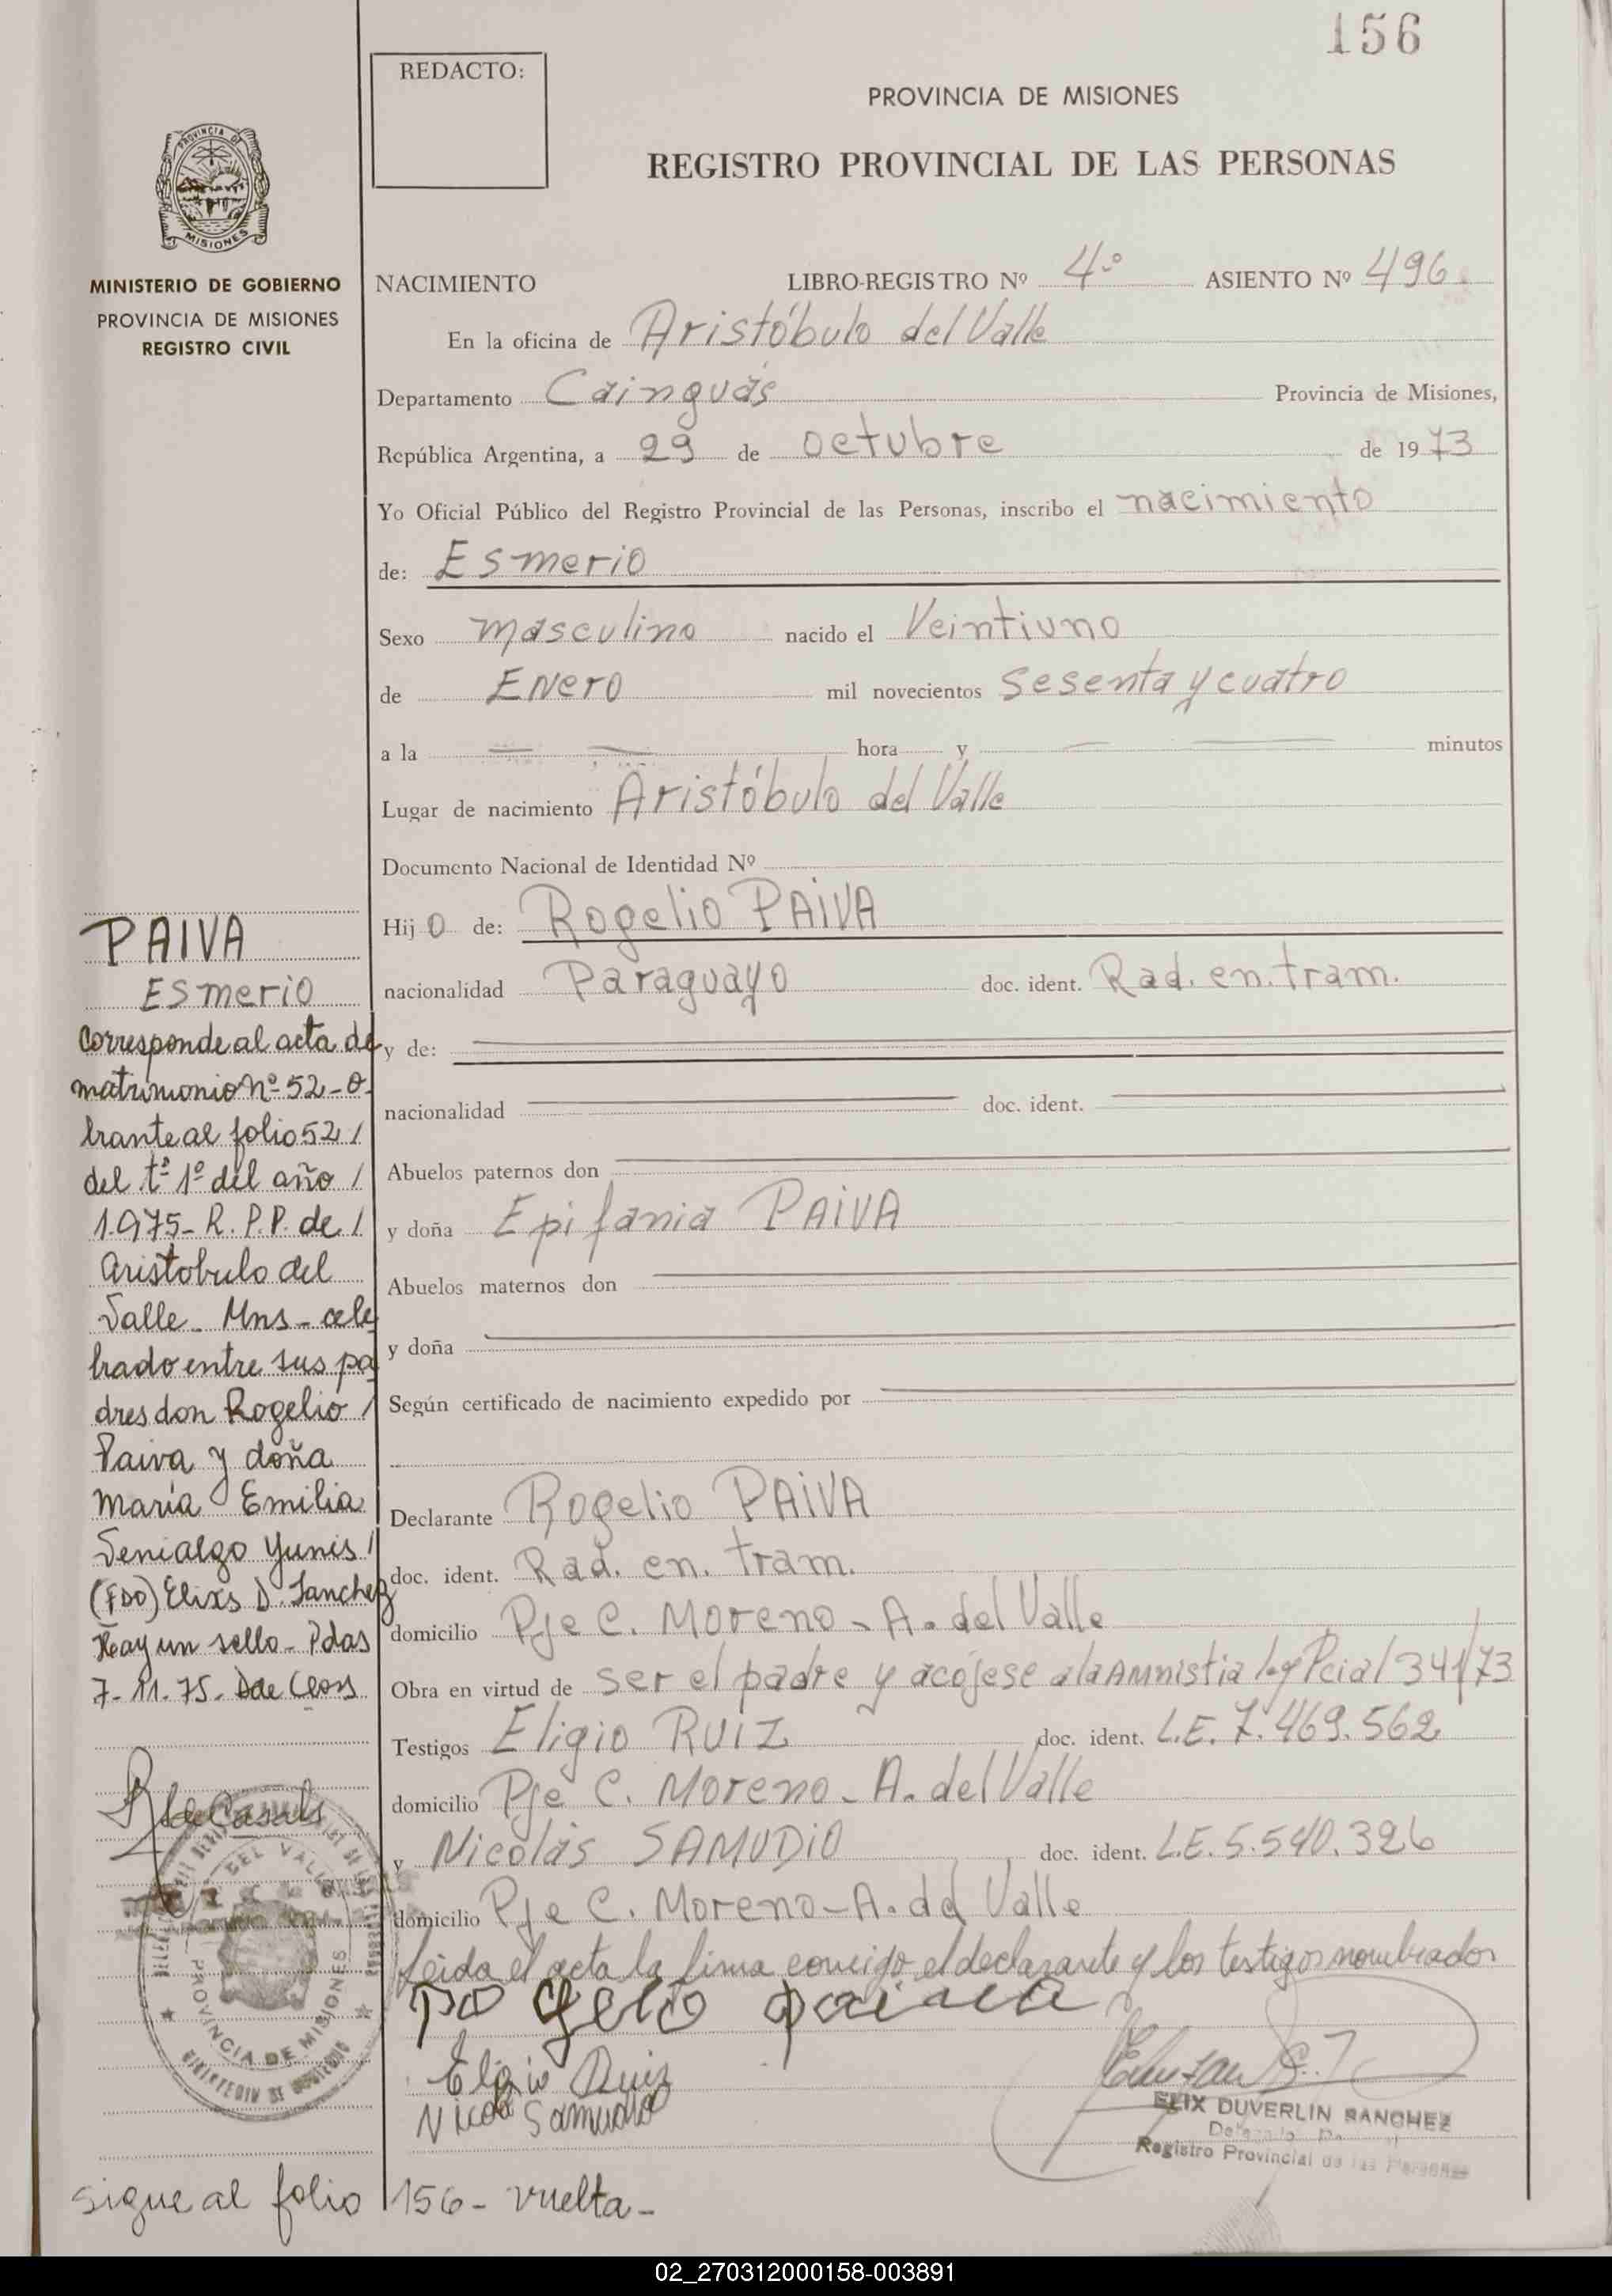 156
REDACTO:
PROVINCIA DE MISIONES
REGISTRO PROVINCIAL DE LAS PERSONAS
PROVINCIA DE
MISIONES
MINISTERIO DE GOBIERNO
PROVINCIA DE MISIONES
REGISTRO CIVIL
NACIMIENTO LIBRO-REGISTRO Nº 4º ASIENTO Nº 496.
En la oficina de Aristóbulo del Valle
Departamento Cainguás Provincia de Misiones,
República Argentina, a 29 de octubre de 1973
Yo Oficial Público del Registro Provincial de las Personas, inscribo el nacimiento
de: Esmerio
Sexo masculino nacido el Veintiuno
de Enero mil novecientos sesenta y cuatro
a la hora y minutos
Lugar de nacimiento Aristóbulo del Valle
Documento Nacional de Identidad Nº
Hij o de: Rogelio PAIVA
nacionalidad Paraguayo doc. ident. Rad. en. tram.
y de:
nacionalidad doc. ident.
Abuelos paternos don
y doña Epifania PAIVA
Abuelos maternos don
y doña
Según certificado de nacimiento expedido por
Declarante Rogelio PAIVA
doc. ident. Rad. en. tram.
domicilio Pje C. Moreno - A. del Valle
Obra en virtud de ser el padre y acójese a la AMnistia ley Pcial 341/73
Testigos Eligio RUIZ doc. ident. L.E. 7.469.562
domicilio Pje C. Moreno - A. del Valle
y Nicolás SAMUDIO doc. ident. L.E. 5.540.326
domicilio Pje C. Moreno - A. del Valle
Leida el acta la firma conmigo el declarante y los testigos nombrados.
Rogelio paiva
Eligio Ruiz
Nicolas Samudio
ELIX DUVERLIN SANCHEZ
Registro Provincial de las Personas
PAIVA
Esmerio
Corresponde al acta de
matrimonio nº 52 - o-
brante al folio 52 /
del tº 1º del año /
1.975 - R. P. P. de /
Aristobulo del
Valle - Mns - cele
brado entre sus pa
dres don Rogelio /
Paiva y doña
María Emilia
Venialgo Yunis /
(FDO) Elixs D. Sanchez
Hay un sello - Pdas
7 - 11 - 75 -
DEL VALLE
PROVINCIA DE MISIONES
MINISTERIO DE GOBIERNO
sigue al folio 156 - vuelta -
02_270312000158-003891